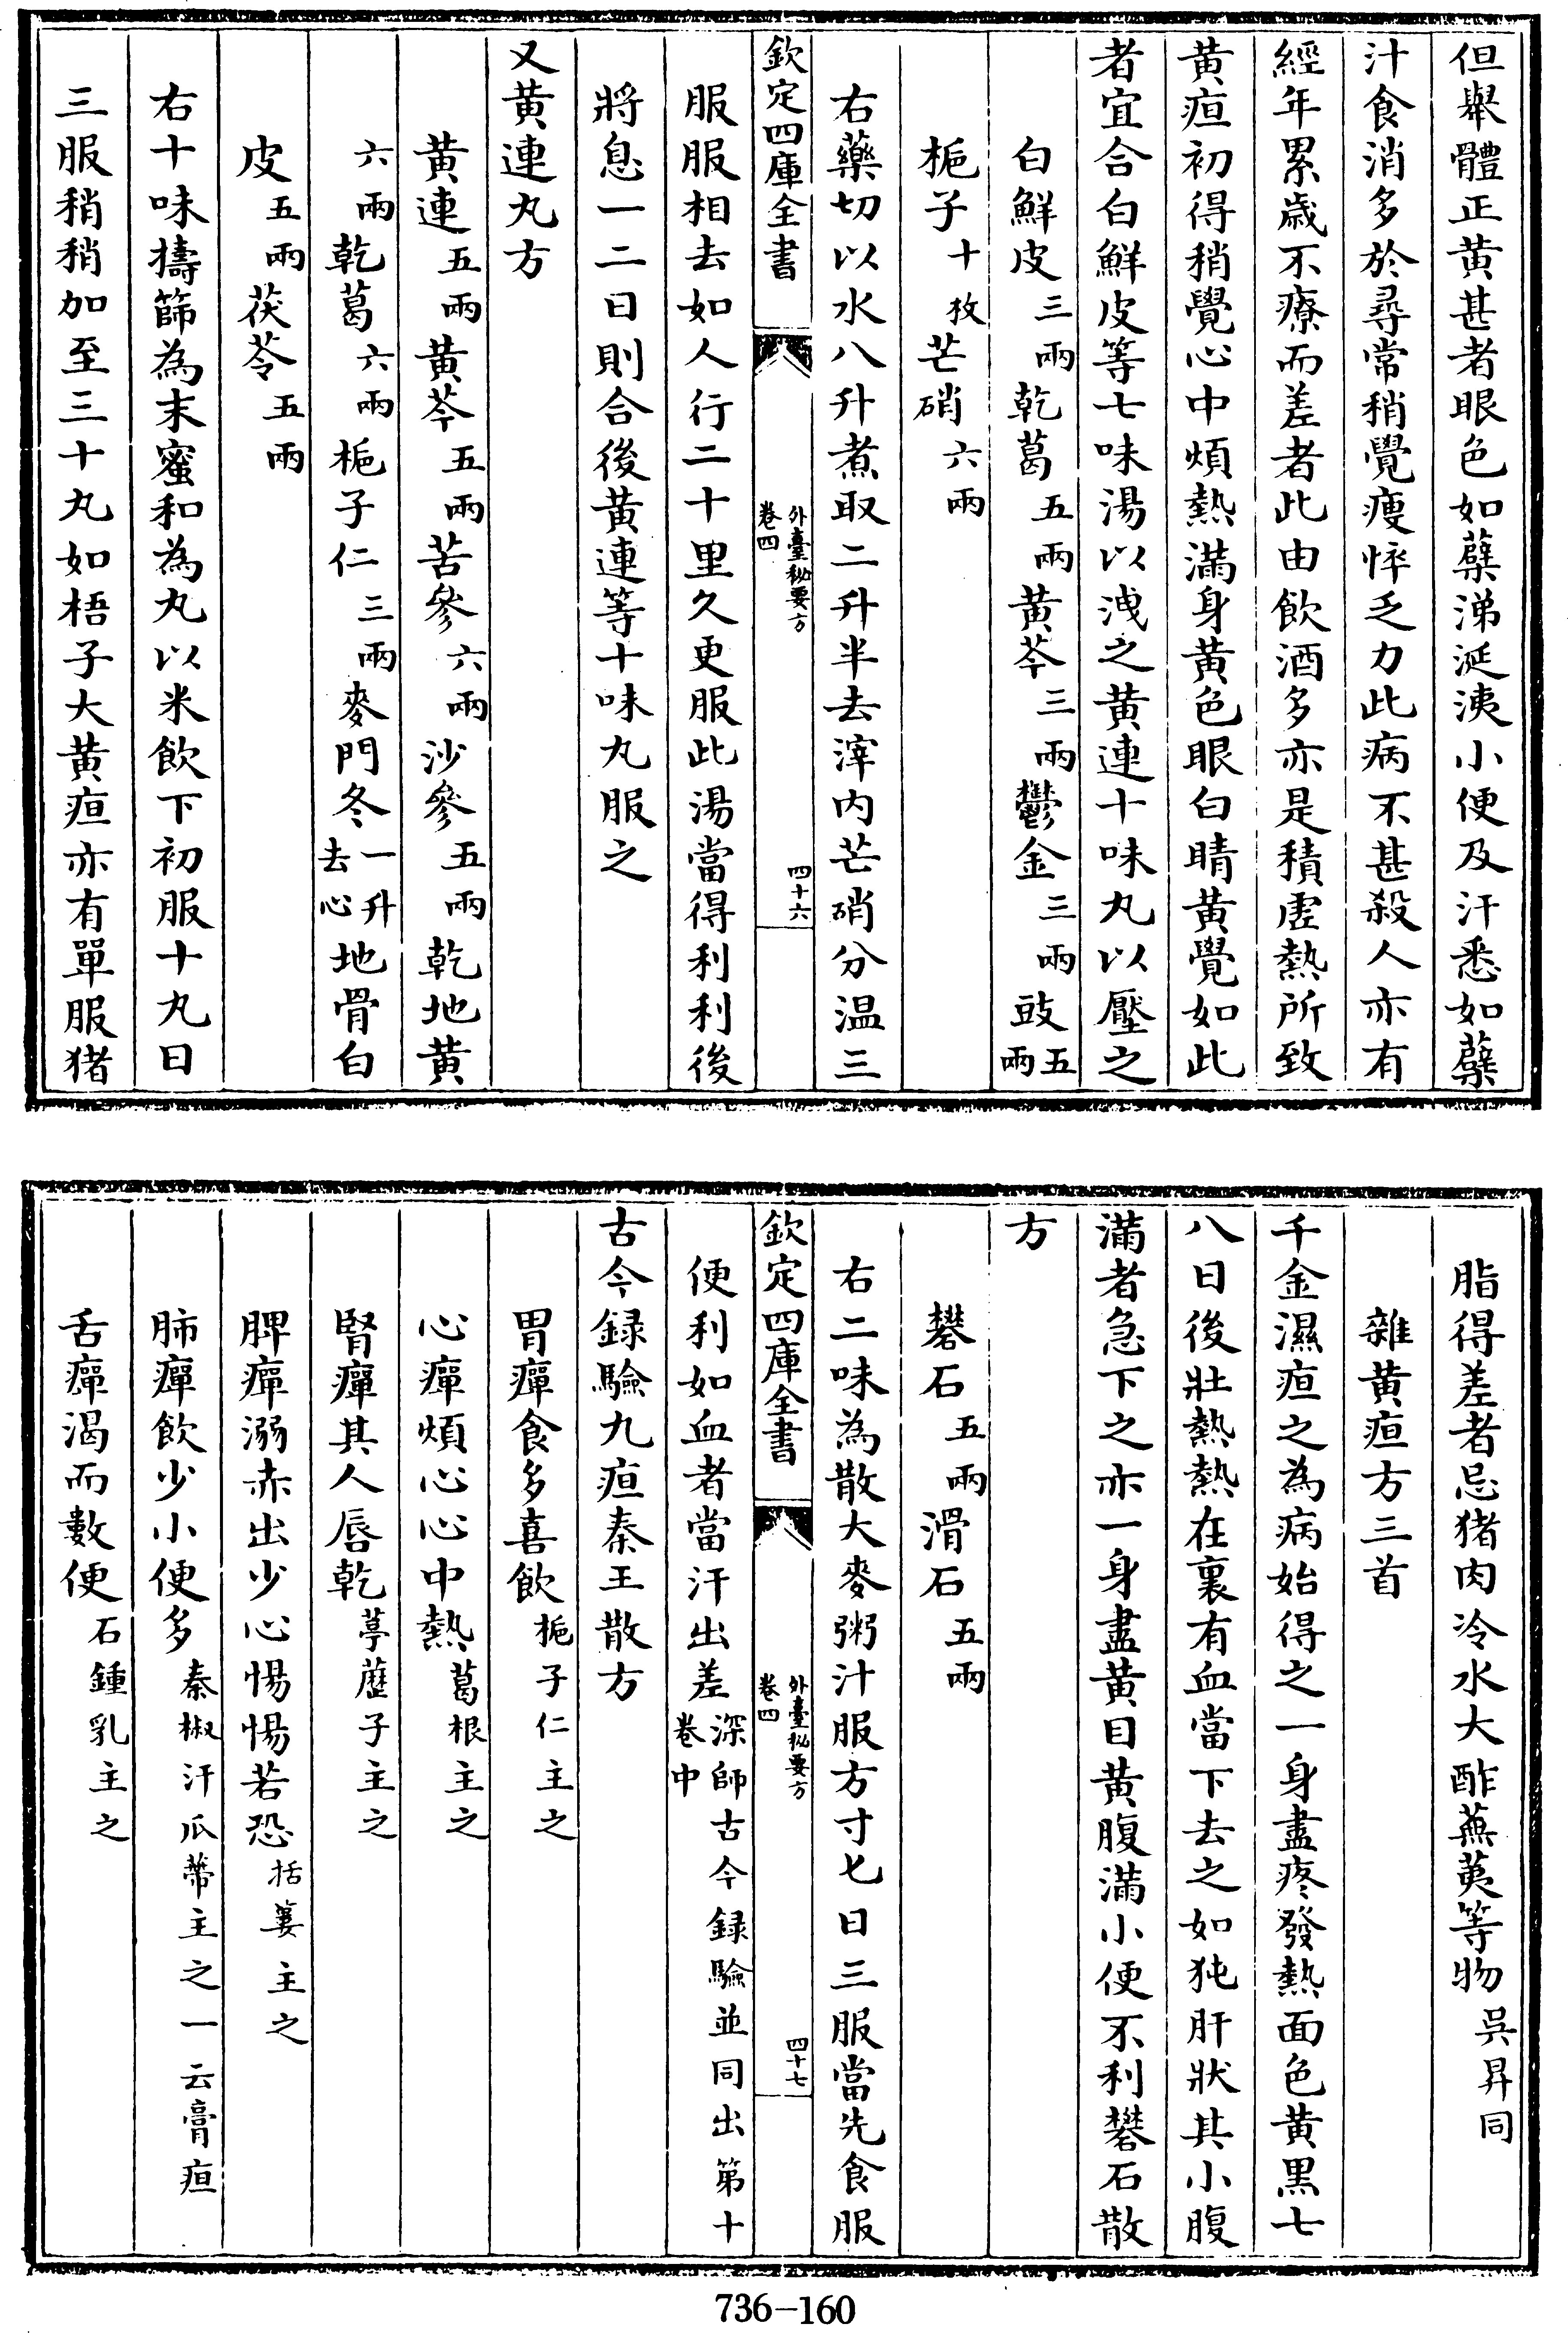 但舉體正黄甚者眼色如蘗涕涎洟小便及汗悉如蘗
汁食消多於尋常稍覺瘦悴乏力此病不甚殺人亦有
經年累歲不療而差者此由飲酒多亦是積虛熱所致
黄疸初得稍覺心中煩熱滿身黄色眼白睛黄覺如此
者宜合白鮮皮等七味湯以洩之黄連十味丸以壓之
白鮮皮三兩乾葛五兩黄芩三兩鬱金三兩豉五兩
梔子十枚芒硝六兩
右藥切以水八升煮取二升半去滓內芒硝分温三
欽定四庫全書
外臺秘要方
卷四
四十六
服服相去如人行二十里久更服此湯當得利利後
將息一二日則合後黄連等十味丸服之
又黄連丸方
黄連五兩黄芩五兩苦參六兩沙參五兩乾地黄
六兩乾葛六兩梔子仁三兩麥門冬一升去心地骨白
皮五兩茯苓五兩
右十味擣篩為末蜜和為丸以米飲下初服十丸日
三服稍稍加至三十丸如梧子大黄疸亦有單服猪
脂得差者忌猪肉冷水大酢蕪荑等物吳昇同
雜黄疸方三首
千金濕疸之為病始得之一身盡疼發熱面色黄黑七
八日後壯熱熱在裏有血當下去之如㹠肝狀其小腹
滿者急下之亦一身盡黄目黄腹滿小便不利礬石散
方
礬石五兩滑石五兩
右二味為散大麥粥汁服方寸匕日三服當先食服
欽定四庫全書
外臺秘要方
卷四
四十七
便利如血者當汗出差深師古今録驗並同出第十卷中
古今録驗九疸秦王散方
胃癉食多喜飲梔子仁主之
心癉煩心心中熱葛根主之
腎癉其人唇乾葶藶子主之
脾癉溺赤出少心惕惕若恐括蔞主之
肺癉飲少小便多秦椒汗瓜蔕主之一云膏疸
舌癉渴而數便石鍾乳主之
736-160